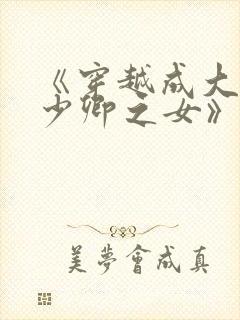 《穿越成大
少卿之女》
美夢會成真